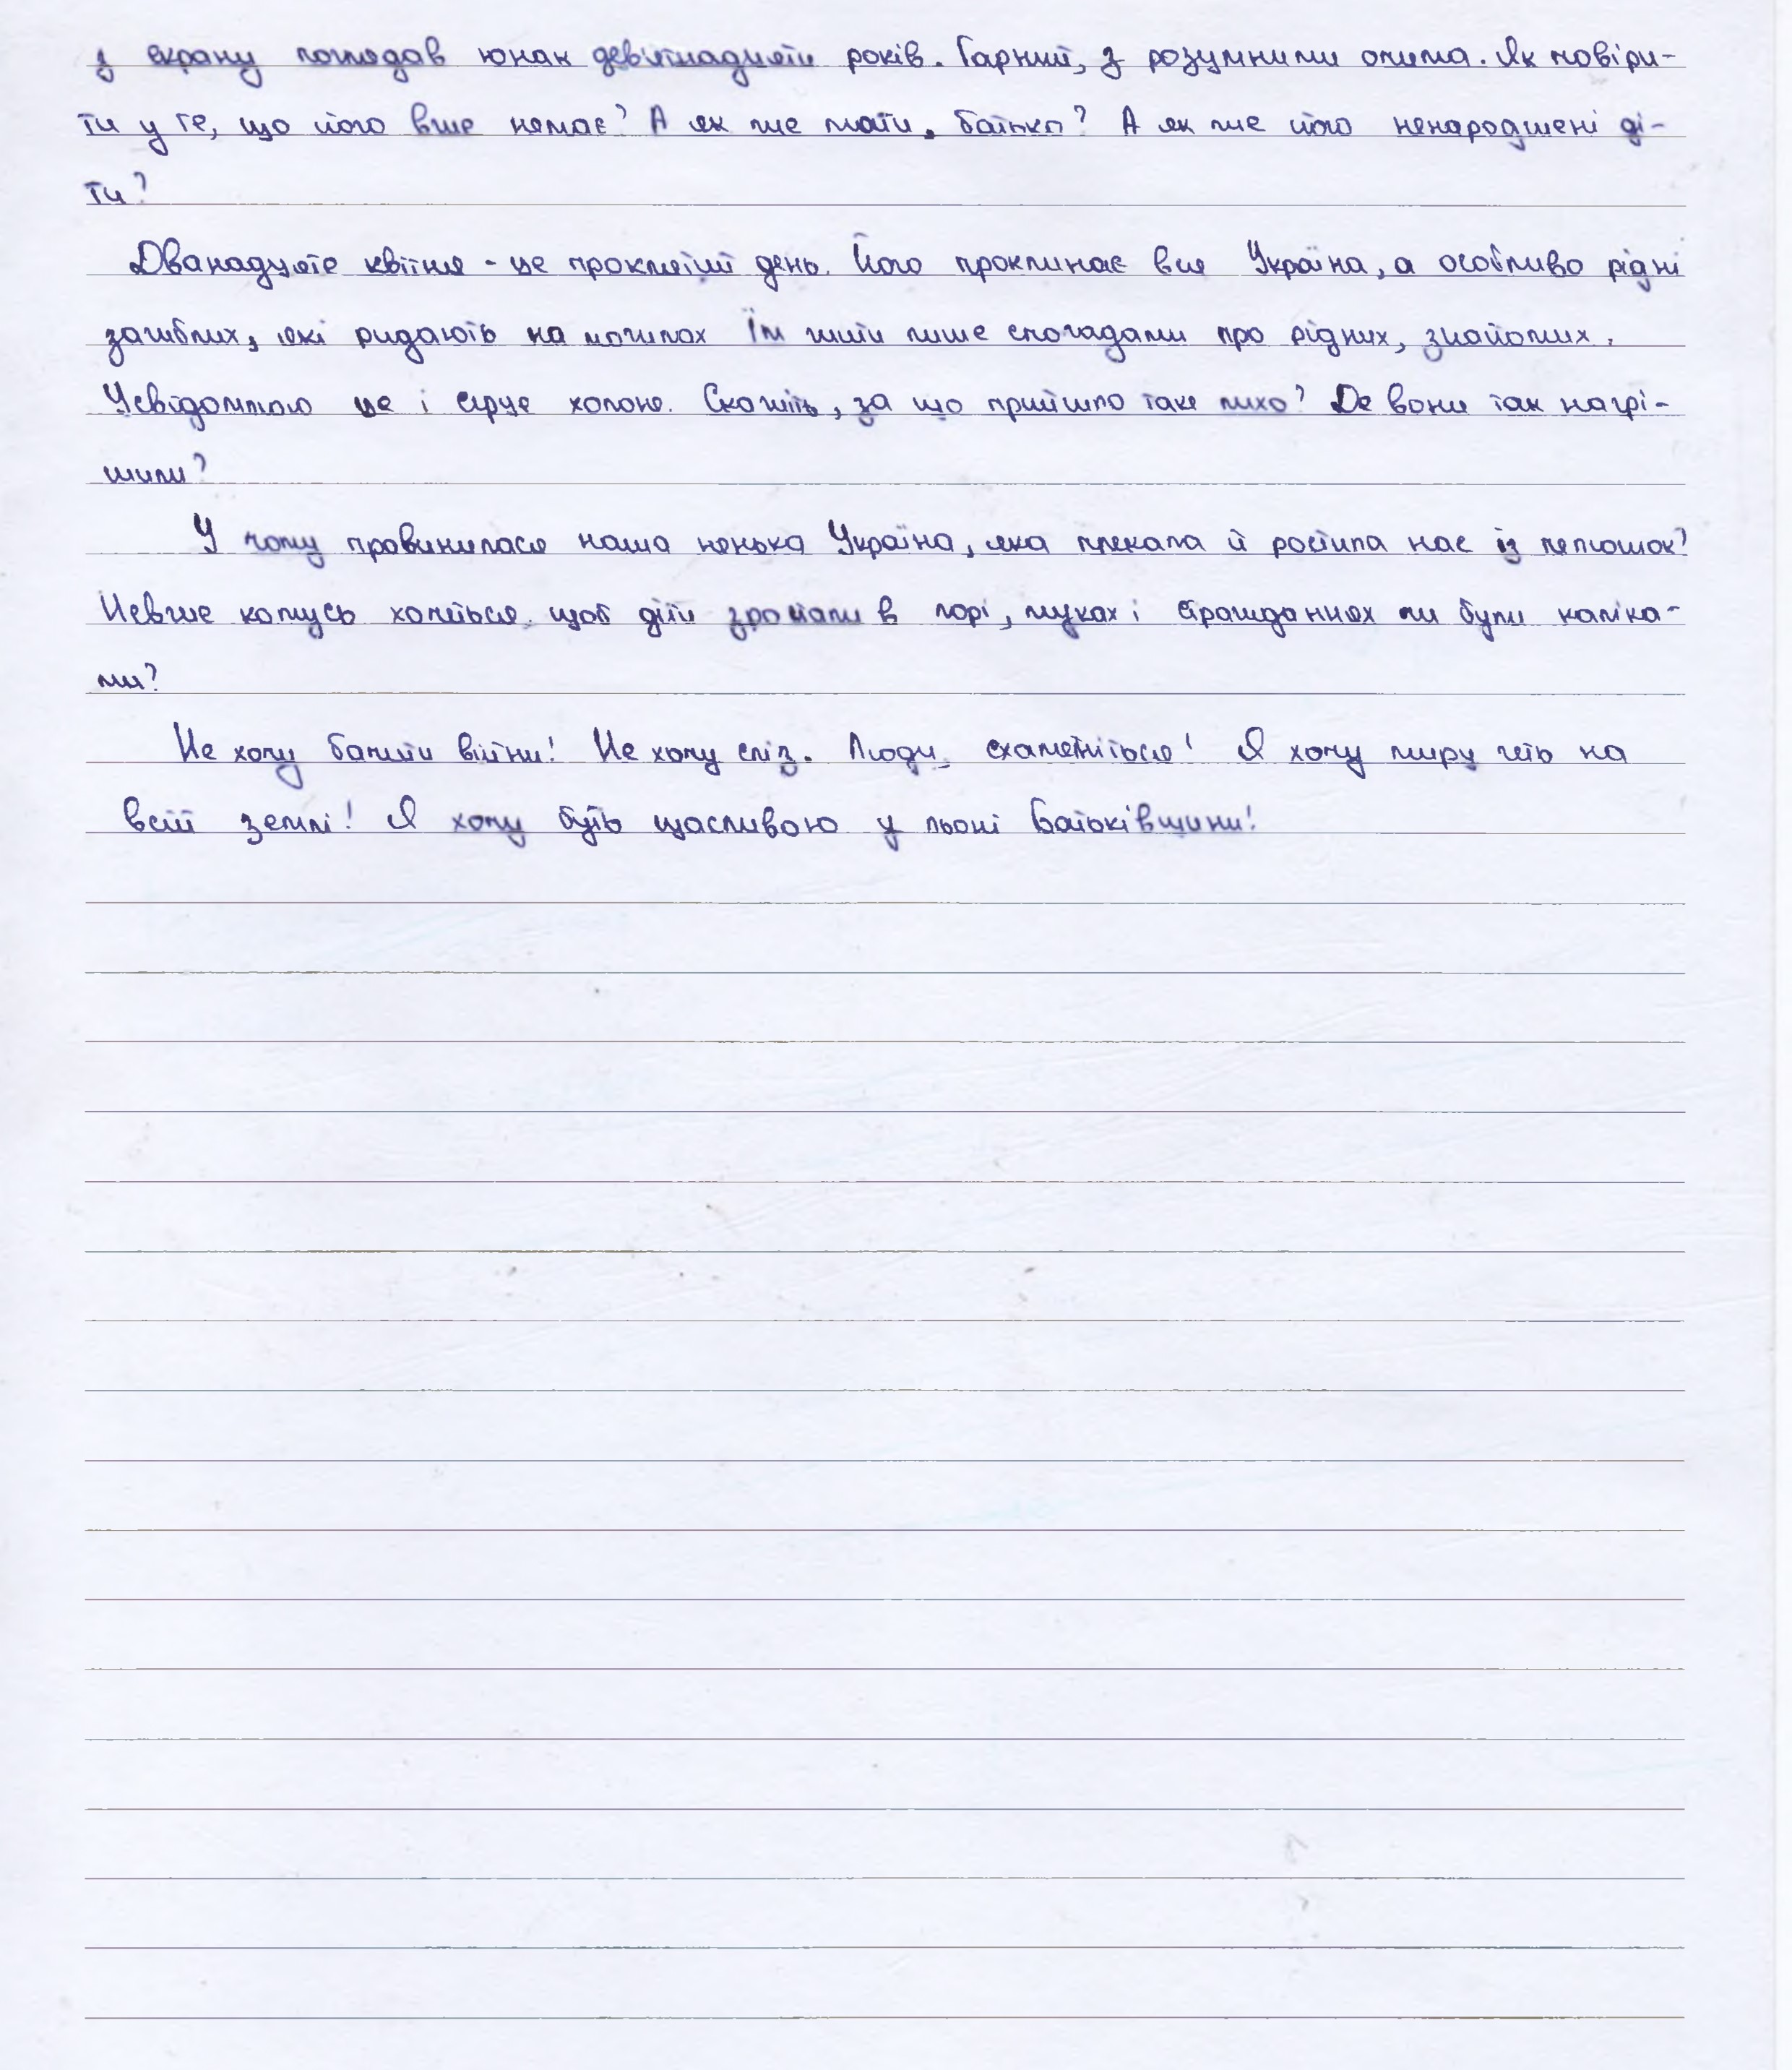 з екрану поглядав юнак дев'ятнадцяти років. Гарний, з розумними очима. Як повіри-
ти у те, що його вже немає? А як же мати, батько? А як же його ненароджені ді-
ти?
Дванадцяте квітня - це проклятий день. Його проклинає вся Україна, а особливо рідні
загиблих, які ридають на могилах Їм жити лише спогадами про рідних, знайомих.
Усвідомлюю це і серце холоне. Скажіть, за що прийшло таке лихо? Де вони так нагрі-
шили?
У чому провинилася наша ненька Україна, яка плекала й ростила нас із пелюшок?
Невже комусь хочеться, щоб діти зростали в горі, муках і стражданнях чи були каліка-
ми?
Не хочу бачити війни! Не хочу сліз. Люди, схаменіться! Я хочу миру геть на
всій землі! Я хочу буть щасливою у льоні Батьківщини!